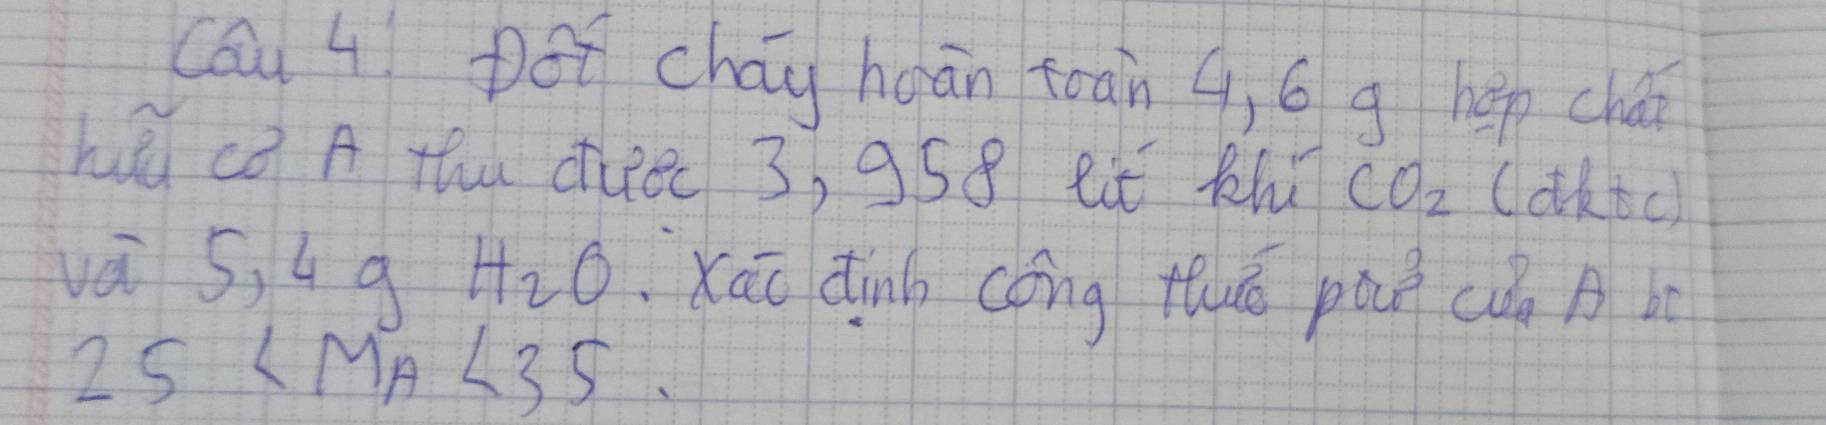 Câu 4: Đốt cháy hoàn toàn 4,6 g hợp chất
hữu cơ A thu được 3,958 lít khí CO₂ (đktc)
và 5,4 g H₂O. Xác định công thức của A bt
25 < M_A < 35.